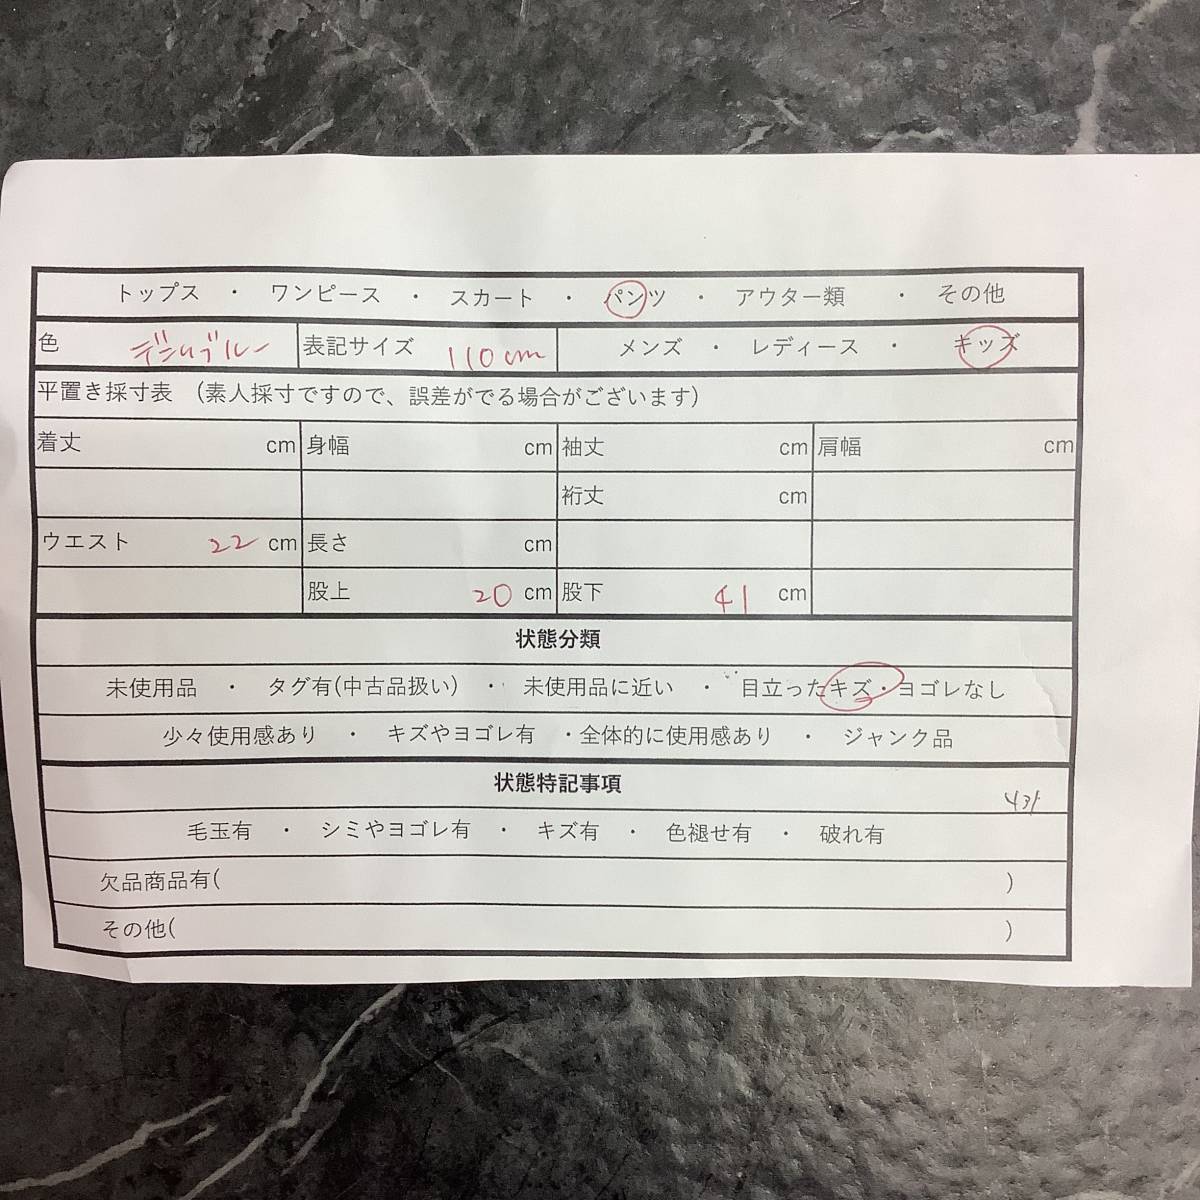 トップス ・ ワンピース ・ スカート ・ パンツ ・ アウター類 ・ その他
色 デニムブルー 表記サイズ 110cm メンズ ・ レディース ・ キッズ
平置き採寸表 （素人採寸ですので、誤差がでる場合がございます）
着丈 cm 身幅 cm 袖丈 cm 肩幅 cm
裄丈 cm
ウエスト 22 cm 長さ cm
股上 20 cm 股下 41 cm
状態分類
未使用品 ・ タグ有(中古品扱い) ・ 未使用品に近い ・ 目立ったキズ・ヨゴレなし
少々使用感あり ・ キズやヨゴレ有 ・全体的に使用感あり ・ ジャンク品
状態特記事項
毛玉有 ・ シミやヨゴレ有 ・ キズ有 ・ 色褪せ有 ・ 破れ有
欠品商品有( )
その他( )